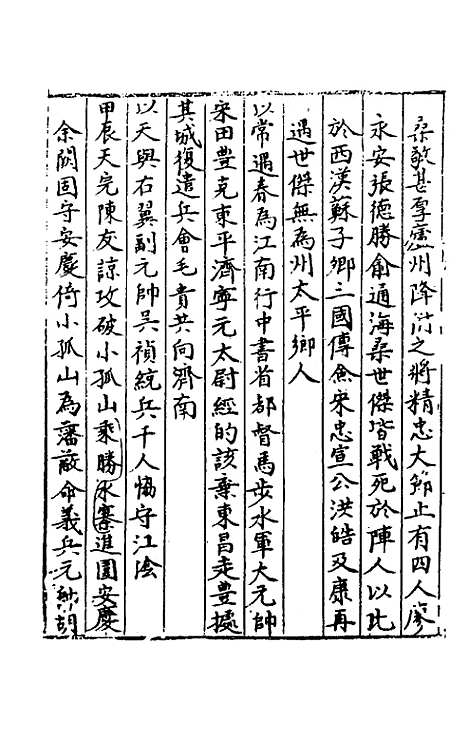 桑敬甚厚廬州降附之將精忠大節止有四人廖
永安張德勝俞通海桑世傑皆戰死於陣人以比
於西漢蘇子卿三國傅僉宋忠宣公洪皓及康再
遇世傑無為州太平鄉人
以常遇春為江南行中書省都督馬步水軍大元帥
宋田豐克東平濟寧元太尉經的該棄東昌走豐據
其城復遣兵會毛貴共向濟南
以天與右翼副元帥吳禎統兵千人協守江陰
甲辰天完陳友諒攻破小孤山乘勝水寨進圍安慶
余闕固守安慶倚小孤山為藩蔽命義兵元帥胡